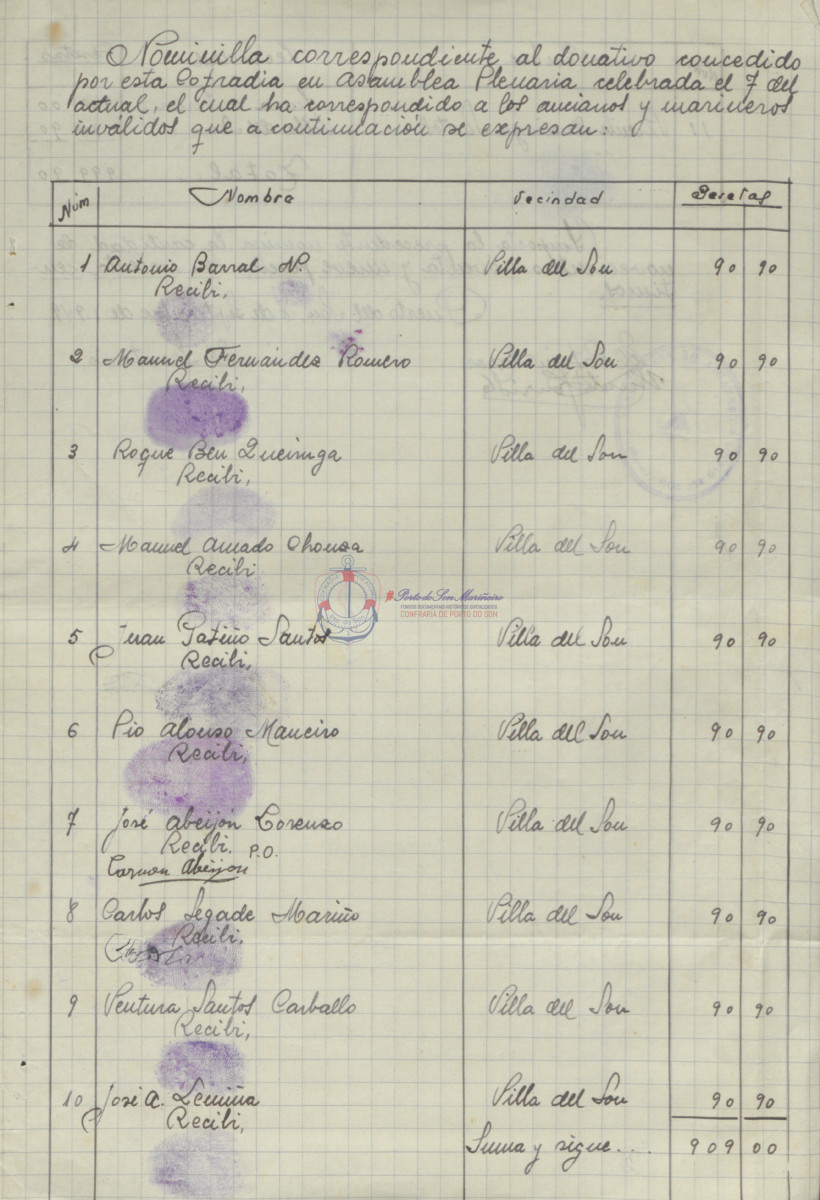 Nominilla correspondiente al donativo concedido
por esta Cofradia en Asamblea Plenaria celebrada el 7 del
actual, el cual ha correspondido a los ancianos y marineros
inválidos que a continuación se expresan:
Núm Nombre Vecindad Pesetas
1 Antonio Barral N. Villa del Son 90 90
Recibi,
2 Manuel Fernández Romero Villa del Son 90 90
Recibi,
3 Roque Ben Queiruga Villa del Son 90 90
Recibi,
4 Manuel Amado Chouza Villa del Son 90 90
Recibi
#PortodoSonMariñeiro
FONDOS DOCUMENTAIS HISTÓRICOS DIXITALIZADOS
CONFRARÍA DE PORTO DO SON
5 Juan Patiño Santos Villa del Son 90 90
Recibi,
6 Pio Alonso Maneiro Villa del Son 90 90
Recibi,
7 José Abeijón Lorenzo Villa del Son 90 90
Recibi. P.O.
Carmen Abeijon
8 Carlos Segade Mariño Villa del Son 90 90
Recibi,
9 Ventura Santos Carballo Villa del Son 90 90
Recibi,
10 José A. Lemiña Villa del Son 90 90
Recibi,
Suma y sigue.... 909 00